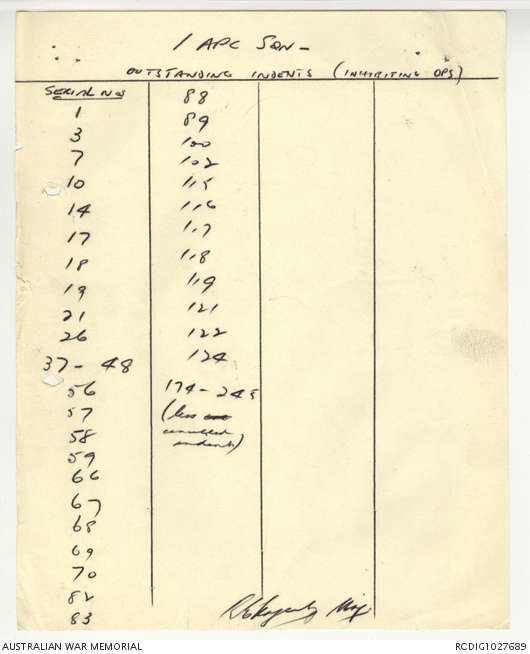 1 APC SQN -
OUTSTANDING INDENTS (INHIBITING OPS)
SERIAL NOS
1
3
7
10
14
17
18
19
21
26
37 - 48
56
57
58
59
66
67
68
69
70
82
83
88
89
100
102
115
116
117
118
119
121
122
124
174 - 245
(less
cancelled
indents)
Maj
AUSTRALIAN WAR MEMORIAL
RCDIG1027689